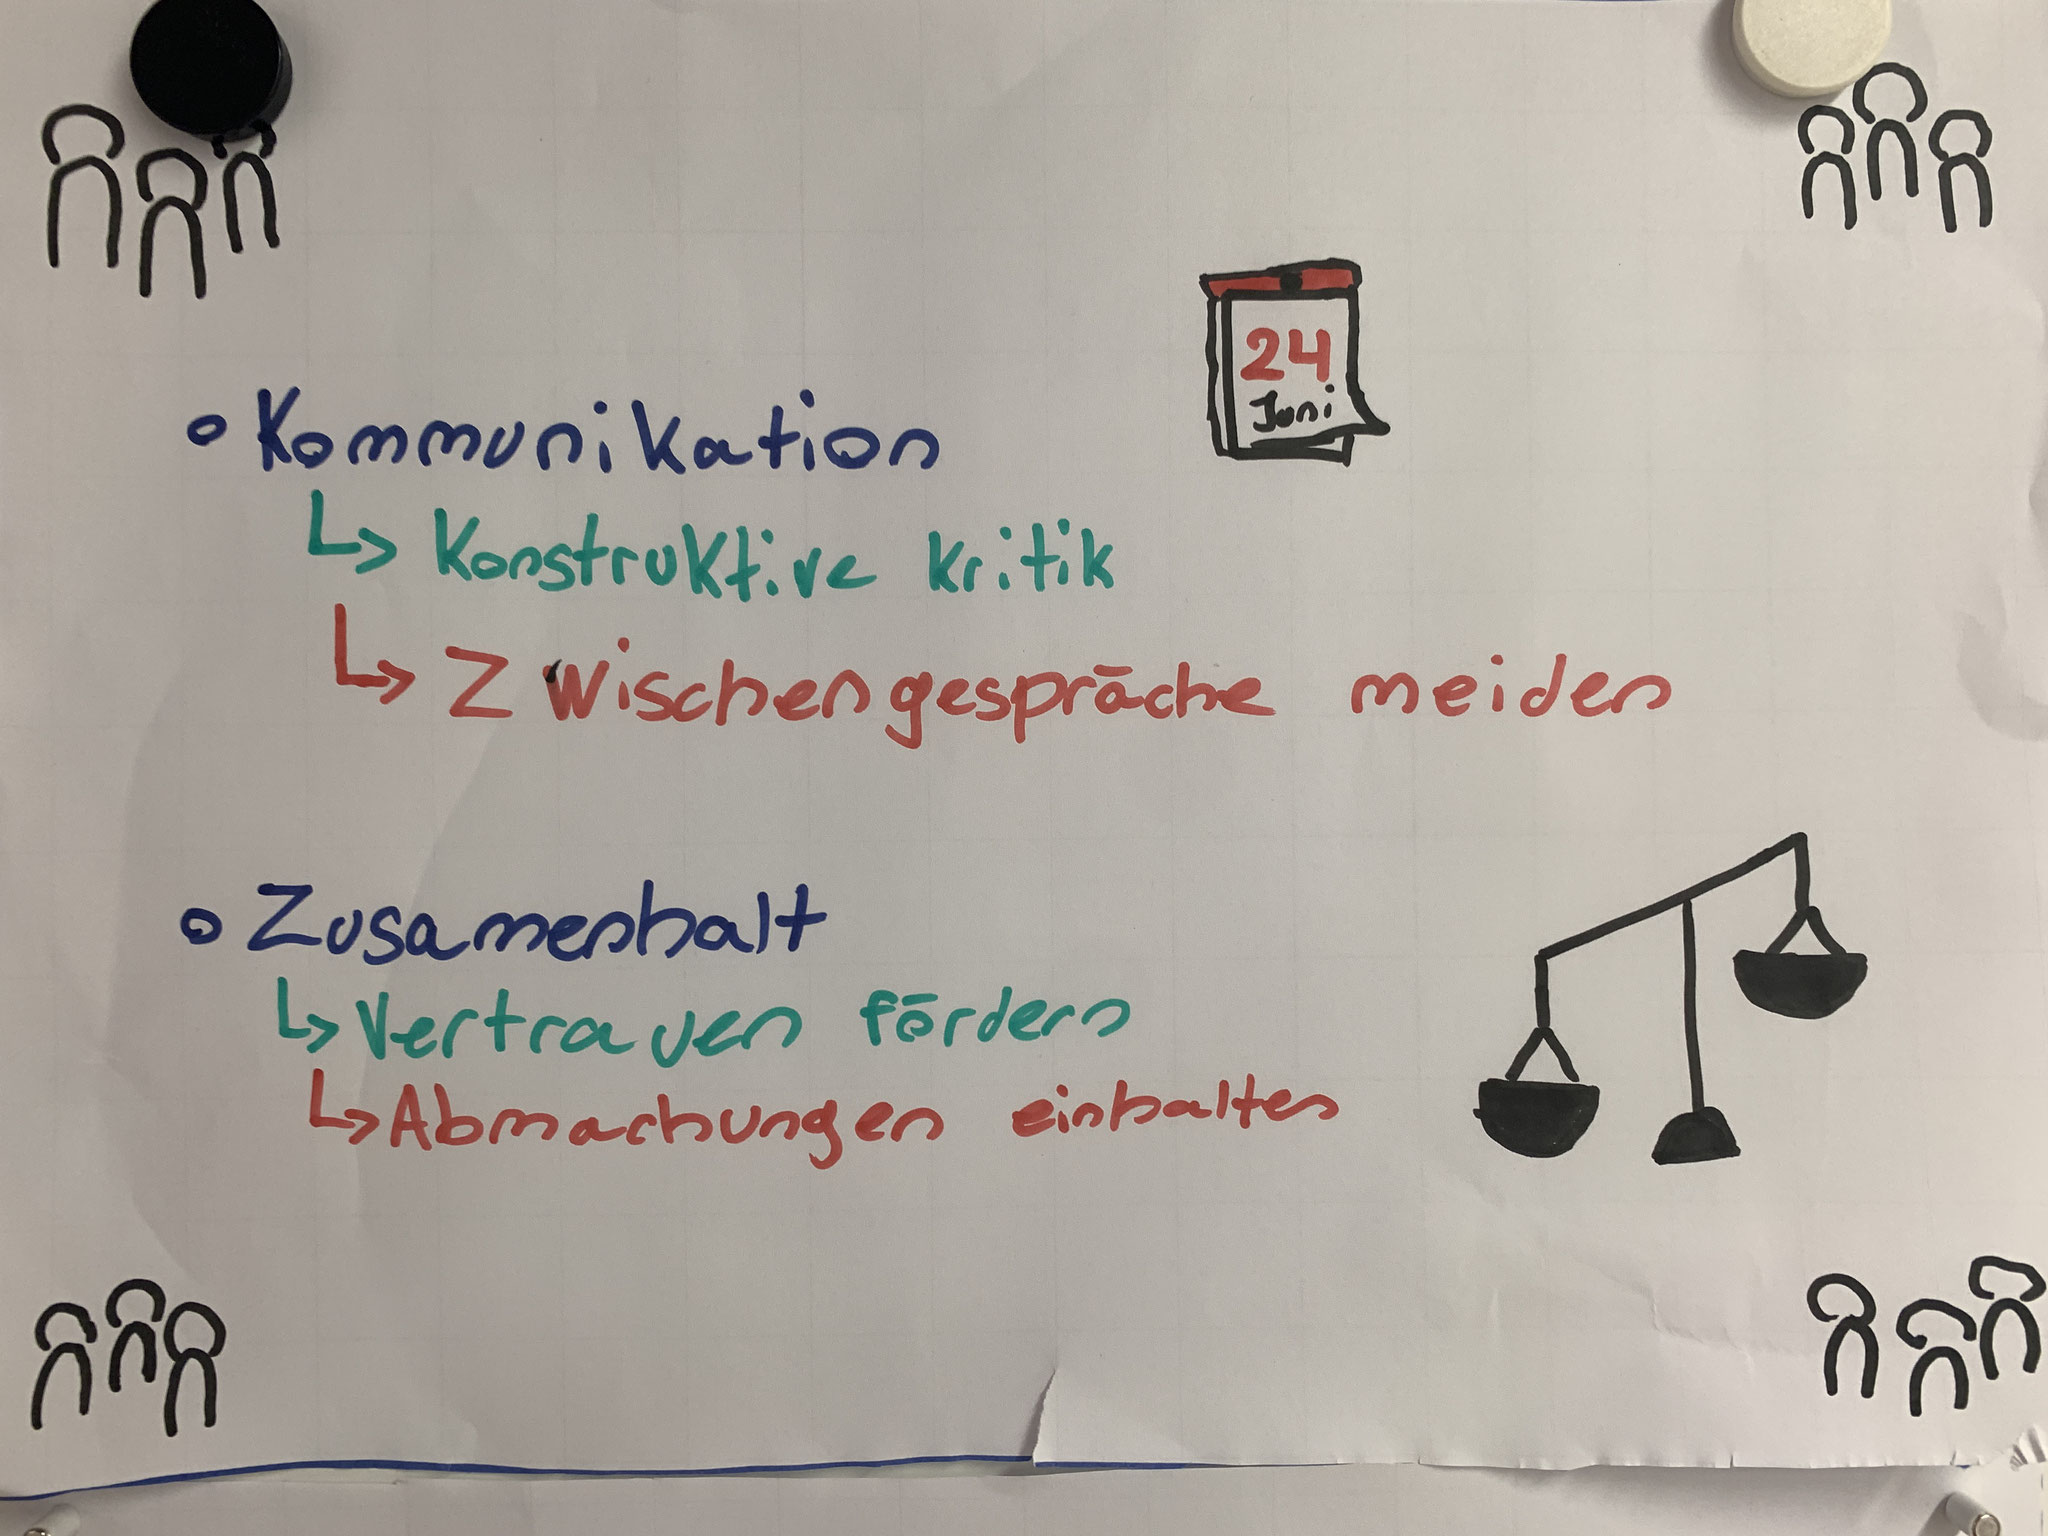 24
Juni
• Kommunikation
↳ Konstruktive kritik
↳ Zwischengespräche meiden
• Zusamenhalt
↳ Vertrauen fördern
↳ Abmachungen einhalten